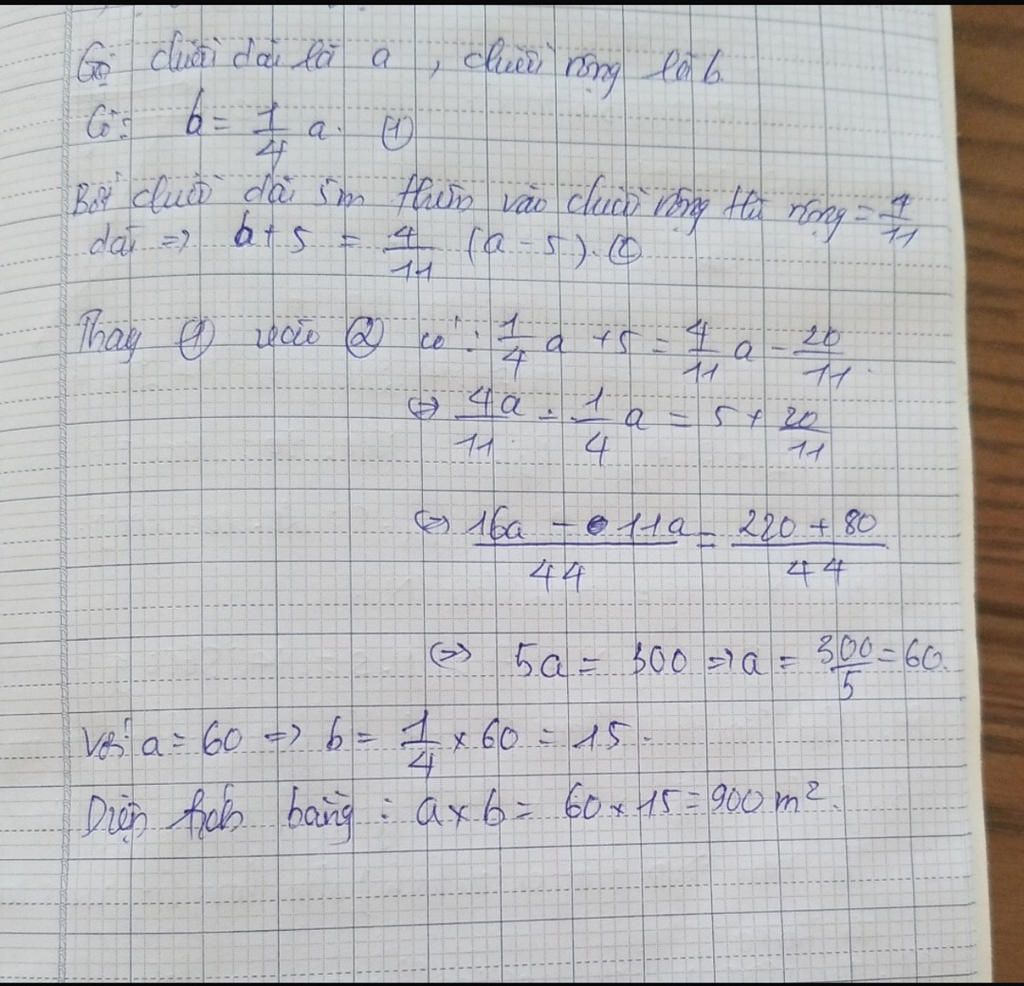 Gọi chiều dài là a, chiều rộng là b.
Có: b = 1/4 a. (1)
Bớt chiều dài 5m thêm vào chiều rộng thì rộng = 4/11
dài => b + 5 = 4/11 (a - 5). (2)
Thay (1) vào (2) có: 1/4 a + 5 = 4/11 a - 20/11.
<=> 4a/11 - 1/4 a = 5 + 20/11
<=> (16a - 11a)/44 = (220 + 80)/44
<=> 5a = 300 => a = 300/5 = 60.
Với a = 60 => b = 1/4 × 60 = 15.
Diện tích bằng : a × b = 60 × 15 = 900 m².